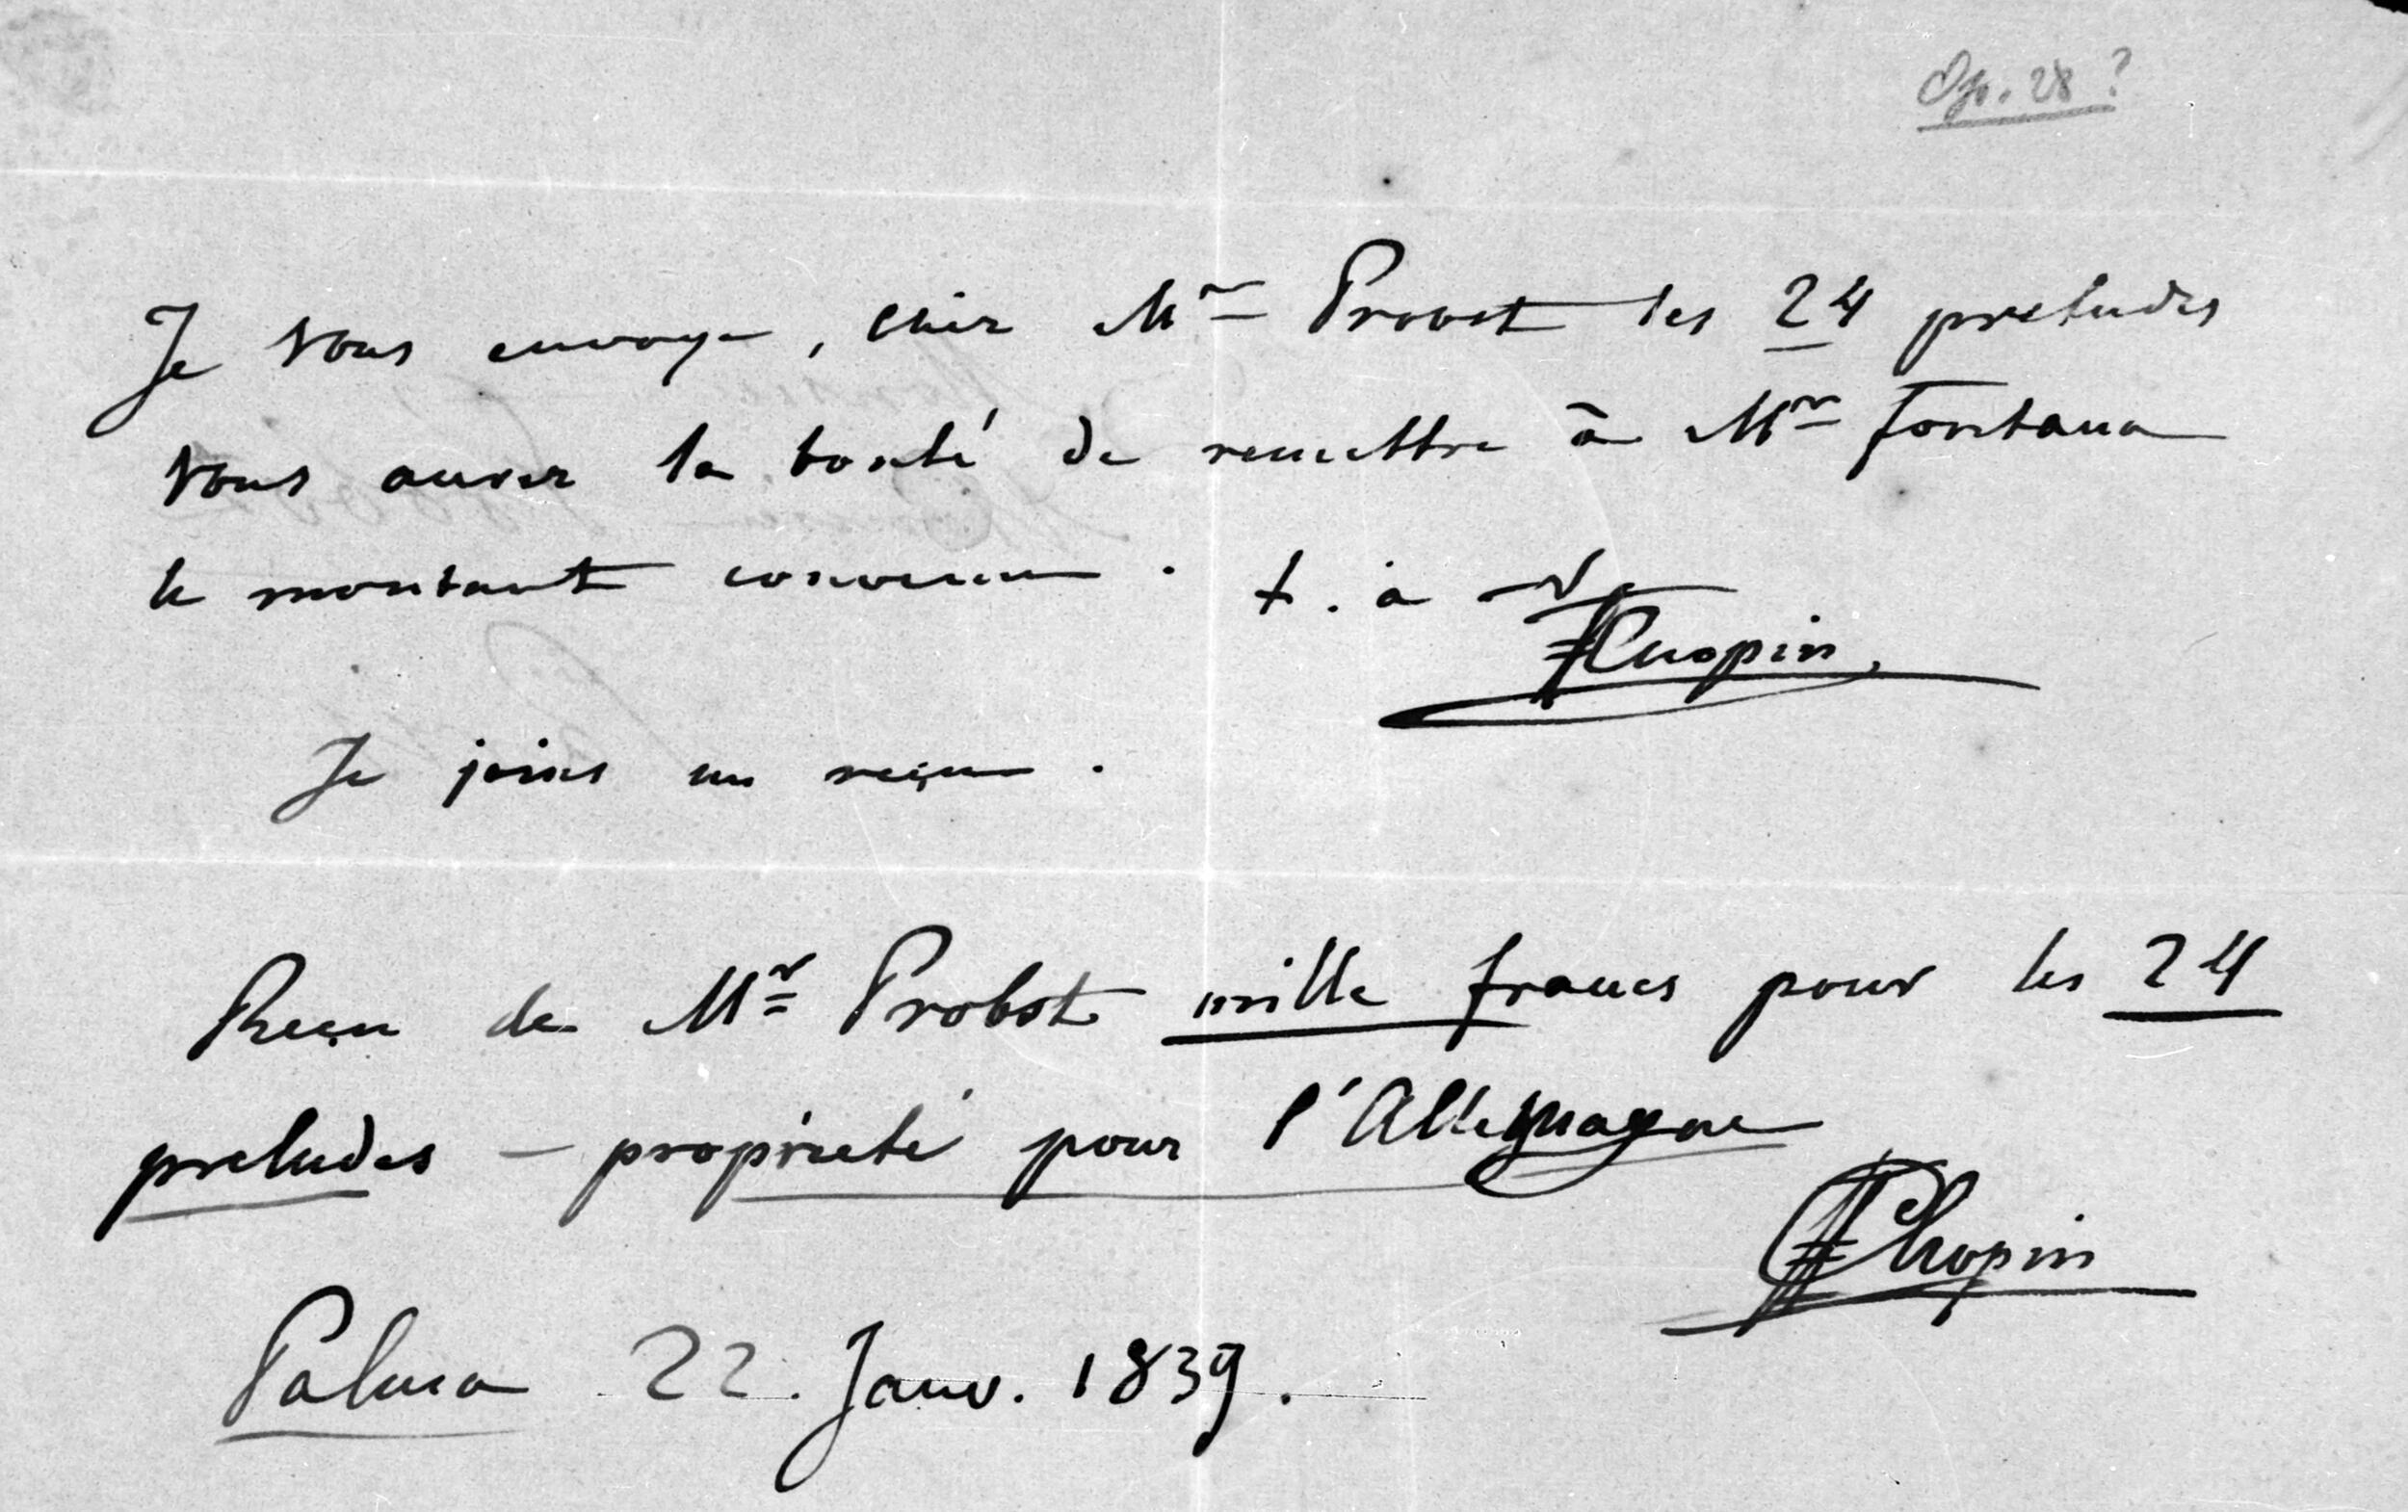 Op. 28 ?
Je vous envoye, cher Mr Probst les 24 preludes
vous aurez la bonté de remettre à Mr Fontana
le montant convenu. t. à v.
FChopin
Je joins un reçu.
Reçu de Mr Probst mille francs pour les 24
preludes – proprieté pour l'Allemagne
FChopin
Palma 22. Janv. 1839.